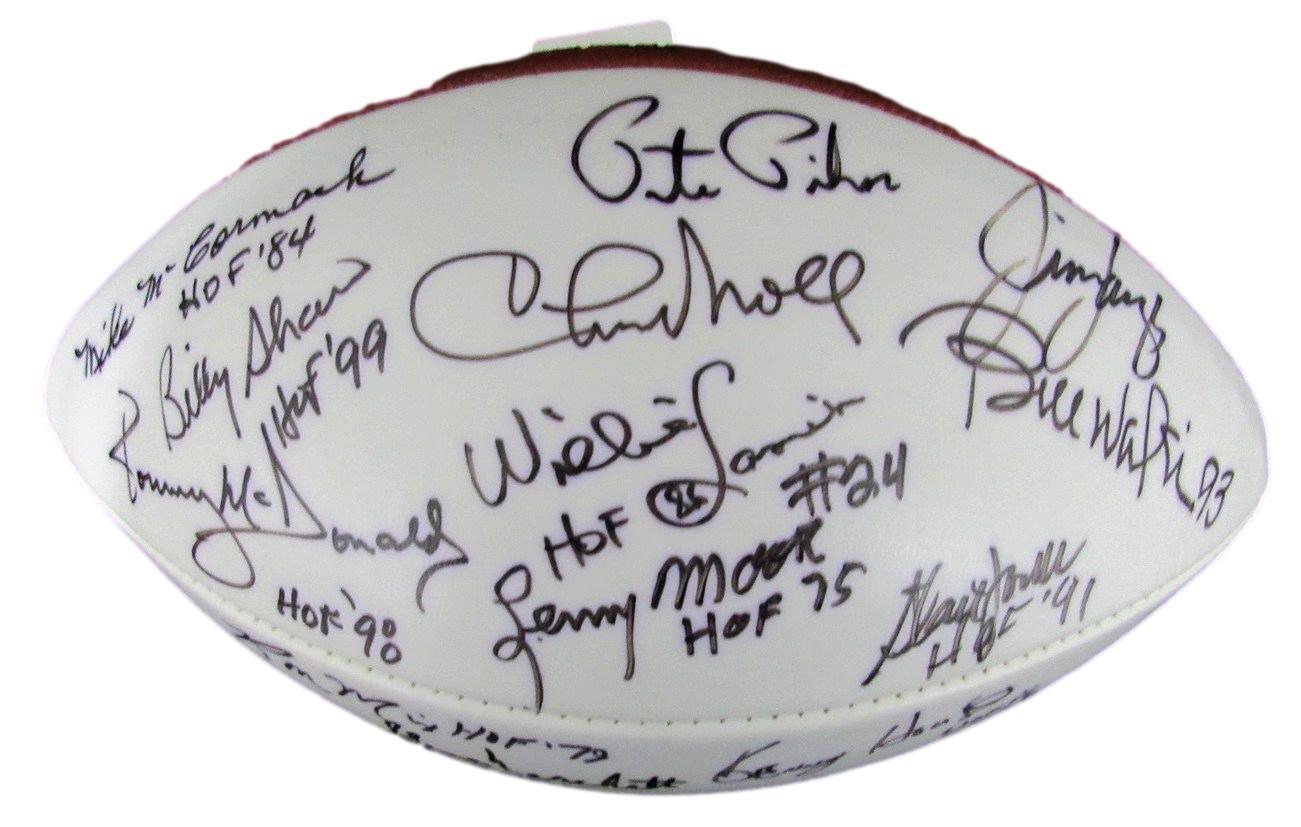 Pete Pihos
Mike McCormack
HOF '84
Chuck Noll
Billy Shaw
HOF '99
Bill Walsh 93
Tommy McDonald
HOF '98
Willie Lanier
HOF 86
#24
Lenny Moore
HOF 75
Stan Jones
HOF '91
Ron Mix HOF '79
Kenny Houston